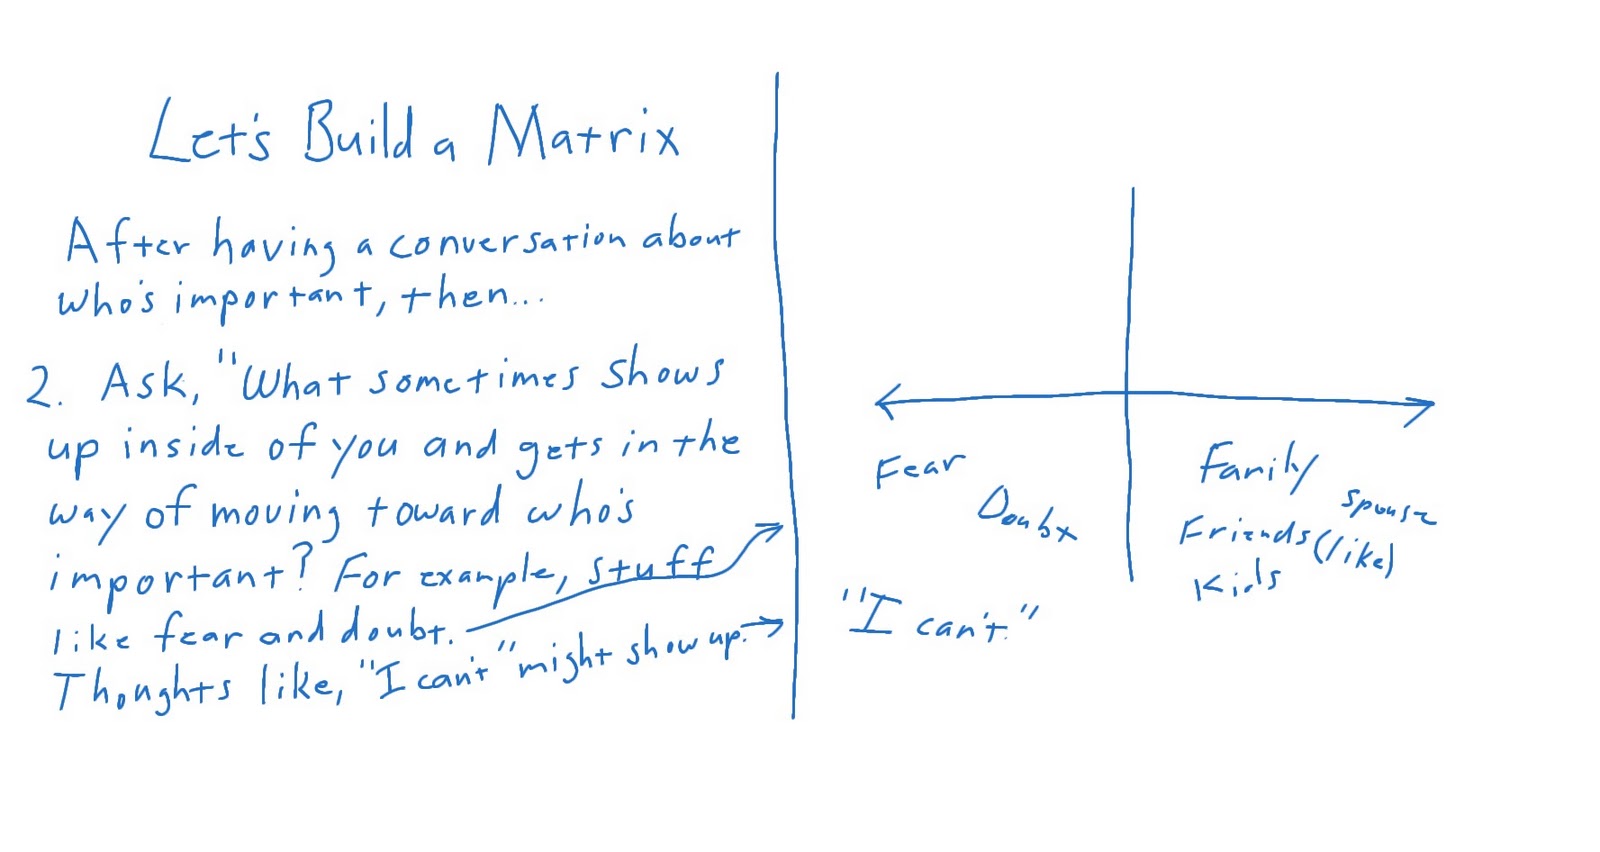 Let's Build a Matrix
After having a conversation about
who's important, then...
2. Ask, "What sometimes shows
up inside of you and gets in the
way of moving toward who's
important? For example, stuff
like fear and doubt.
Thoughts like, "I can't" might show up.
Fear
Doubt
"I can't."
Family
Spouse
Friends (like)
Kids